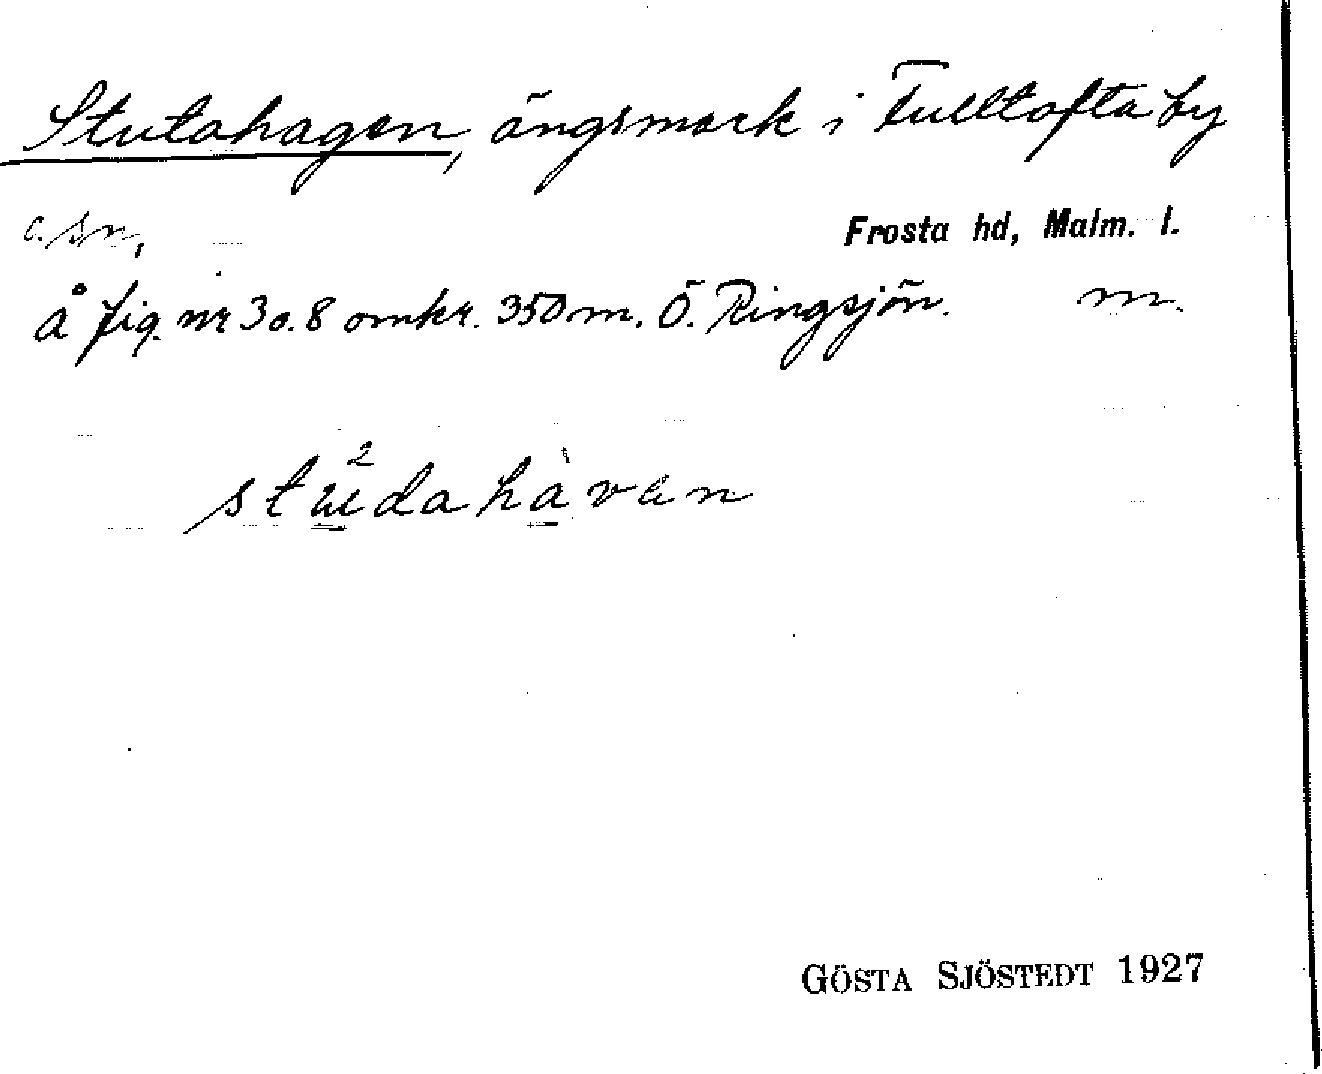 Stutahagen, ängsmark i Fulltofta by
o. sn,
Frosta hd, Malm. l.
å fig. nr 3 o. 8 omkr. 350 m. Ö. Ringsjön. m.
stu̳²dahà̲van
GÖSTA SJÖSTEDT 1927